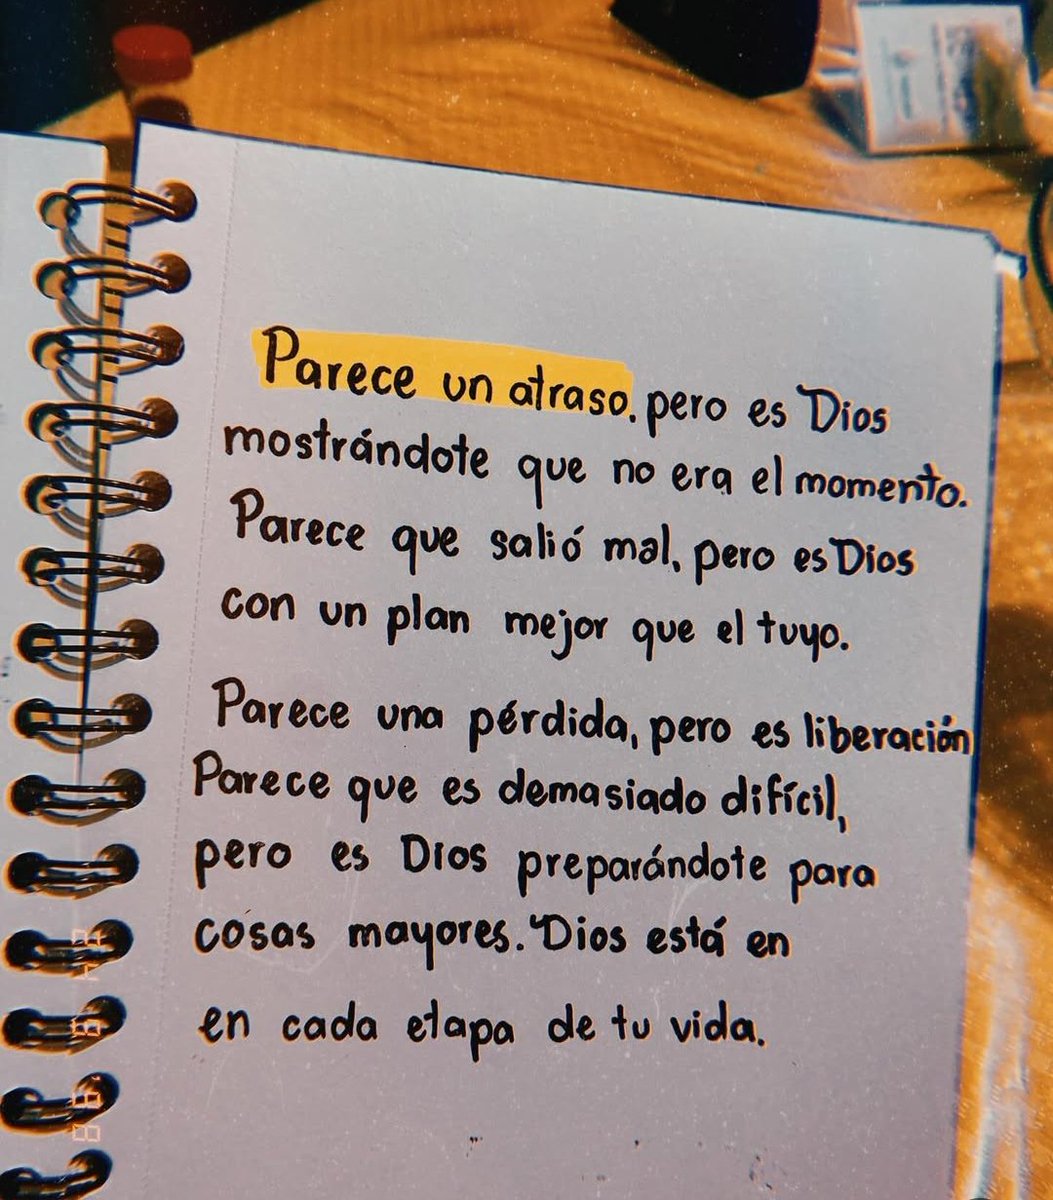 Parece un atraso. pero es Dios
mostrándote que no era el momento.
Parece que salió mal, pero es Dios
con un plan mejor que el tuyo.
Parece una pérdida, pero es liberación
Parece que es demasiado difícil,
pero es Dios preparándote para
cosas mayores. Dios está en
en cada etapa de tu vida.